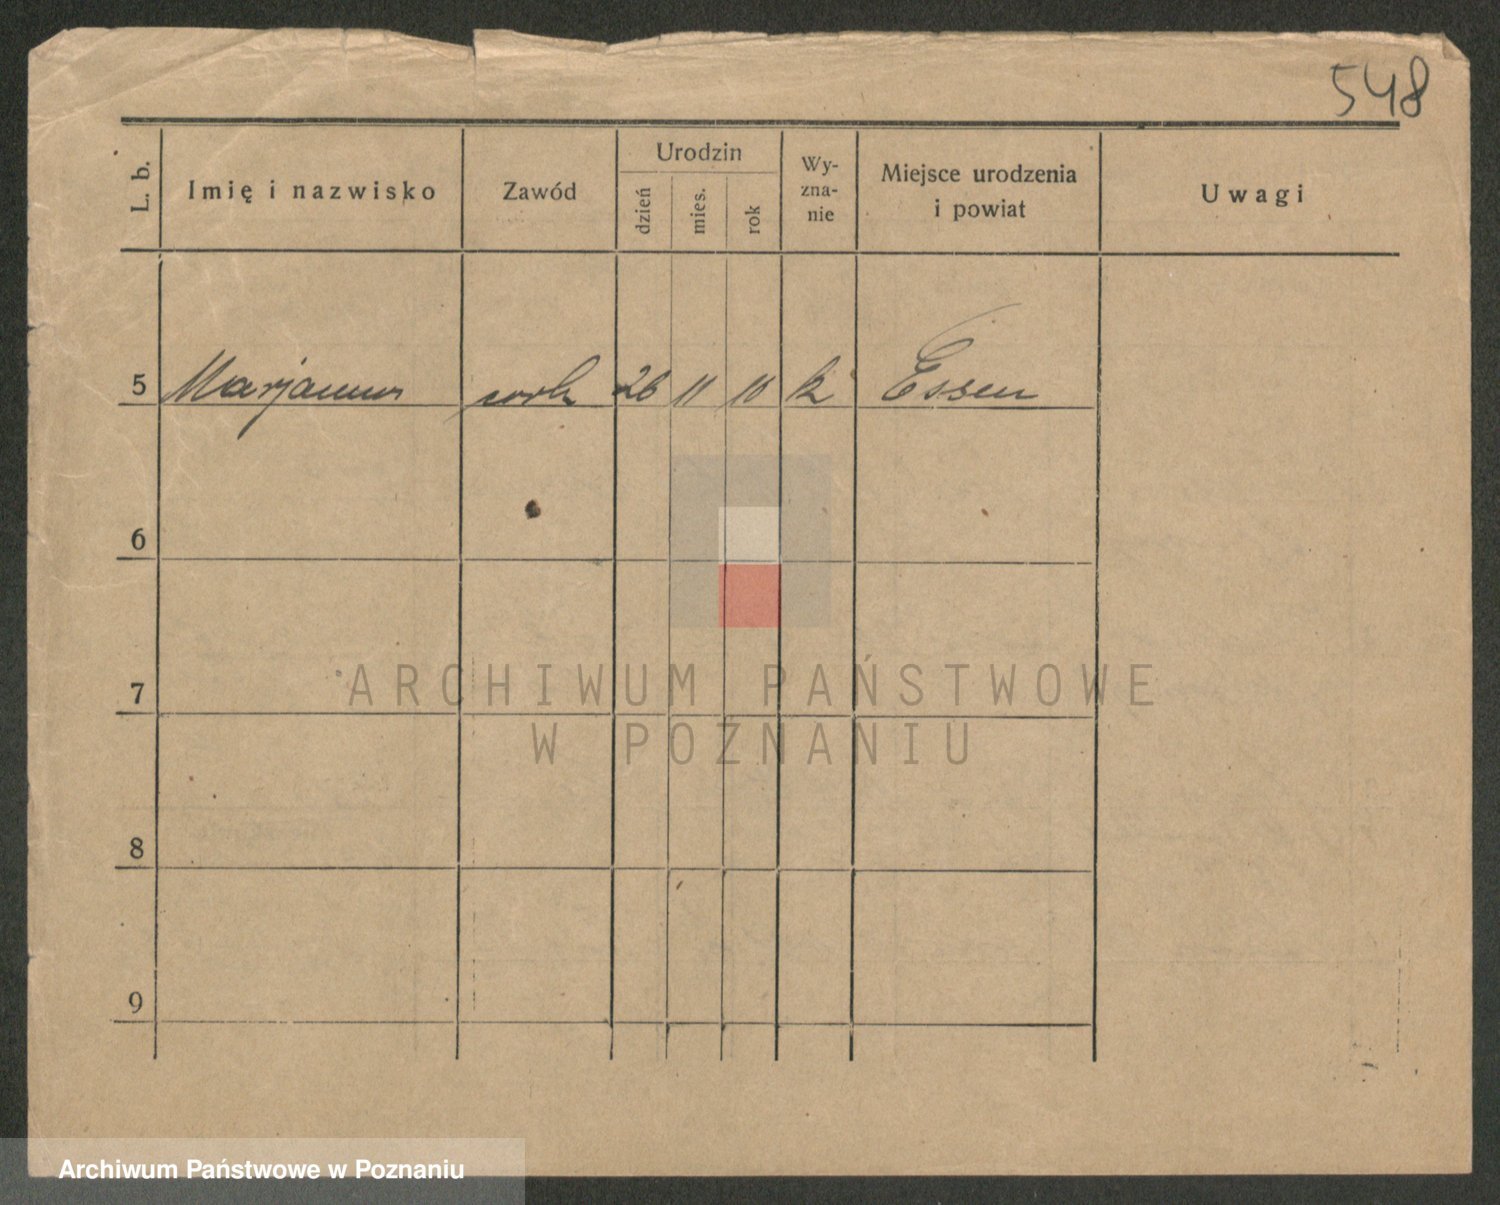 548
L. b.
Imię i nazwisko
Zawód
Urodzin
dzień
mies.
rok
Wy-
zna-
nie
Miejsce urodzenia
i powiat
Uwagi
5 26 11 10 k Essen
6
7
8
9
ARCHIWUM PAŃSTWOWE
W POZNANIU
Archiwum Państwowe w Poznaniu